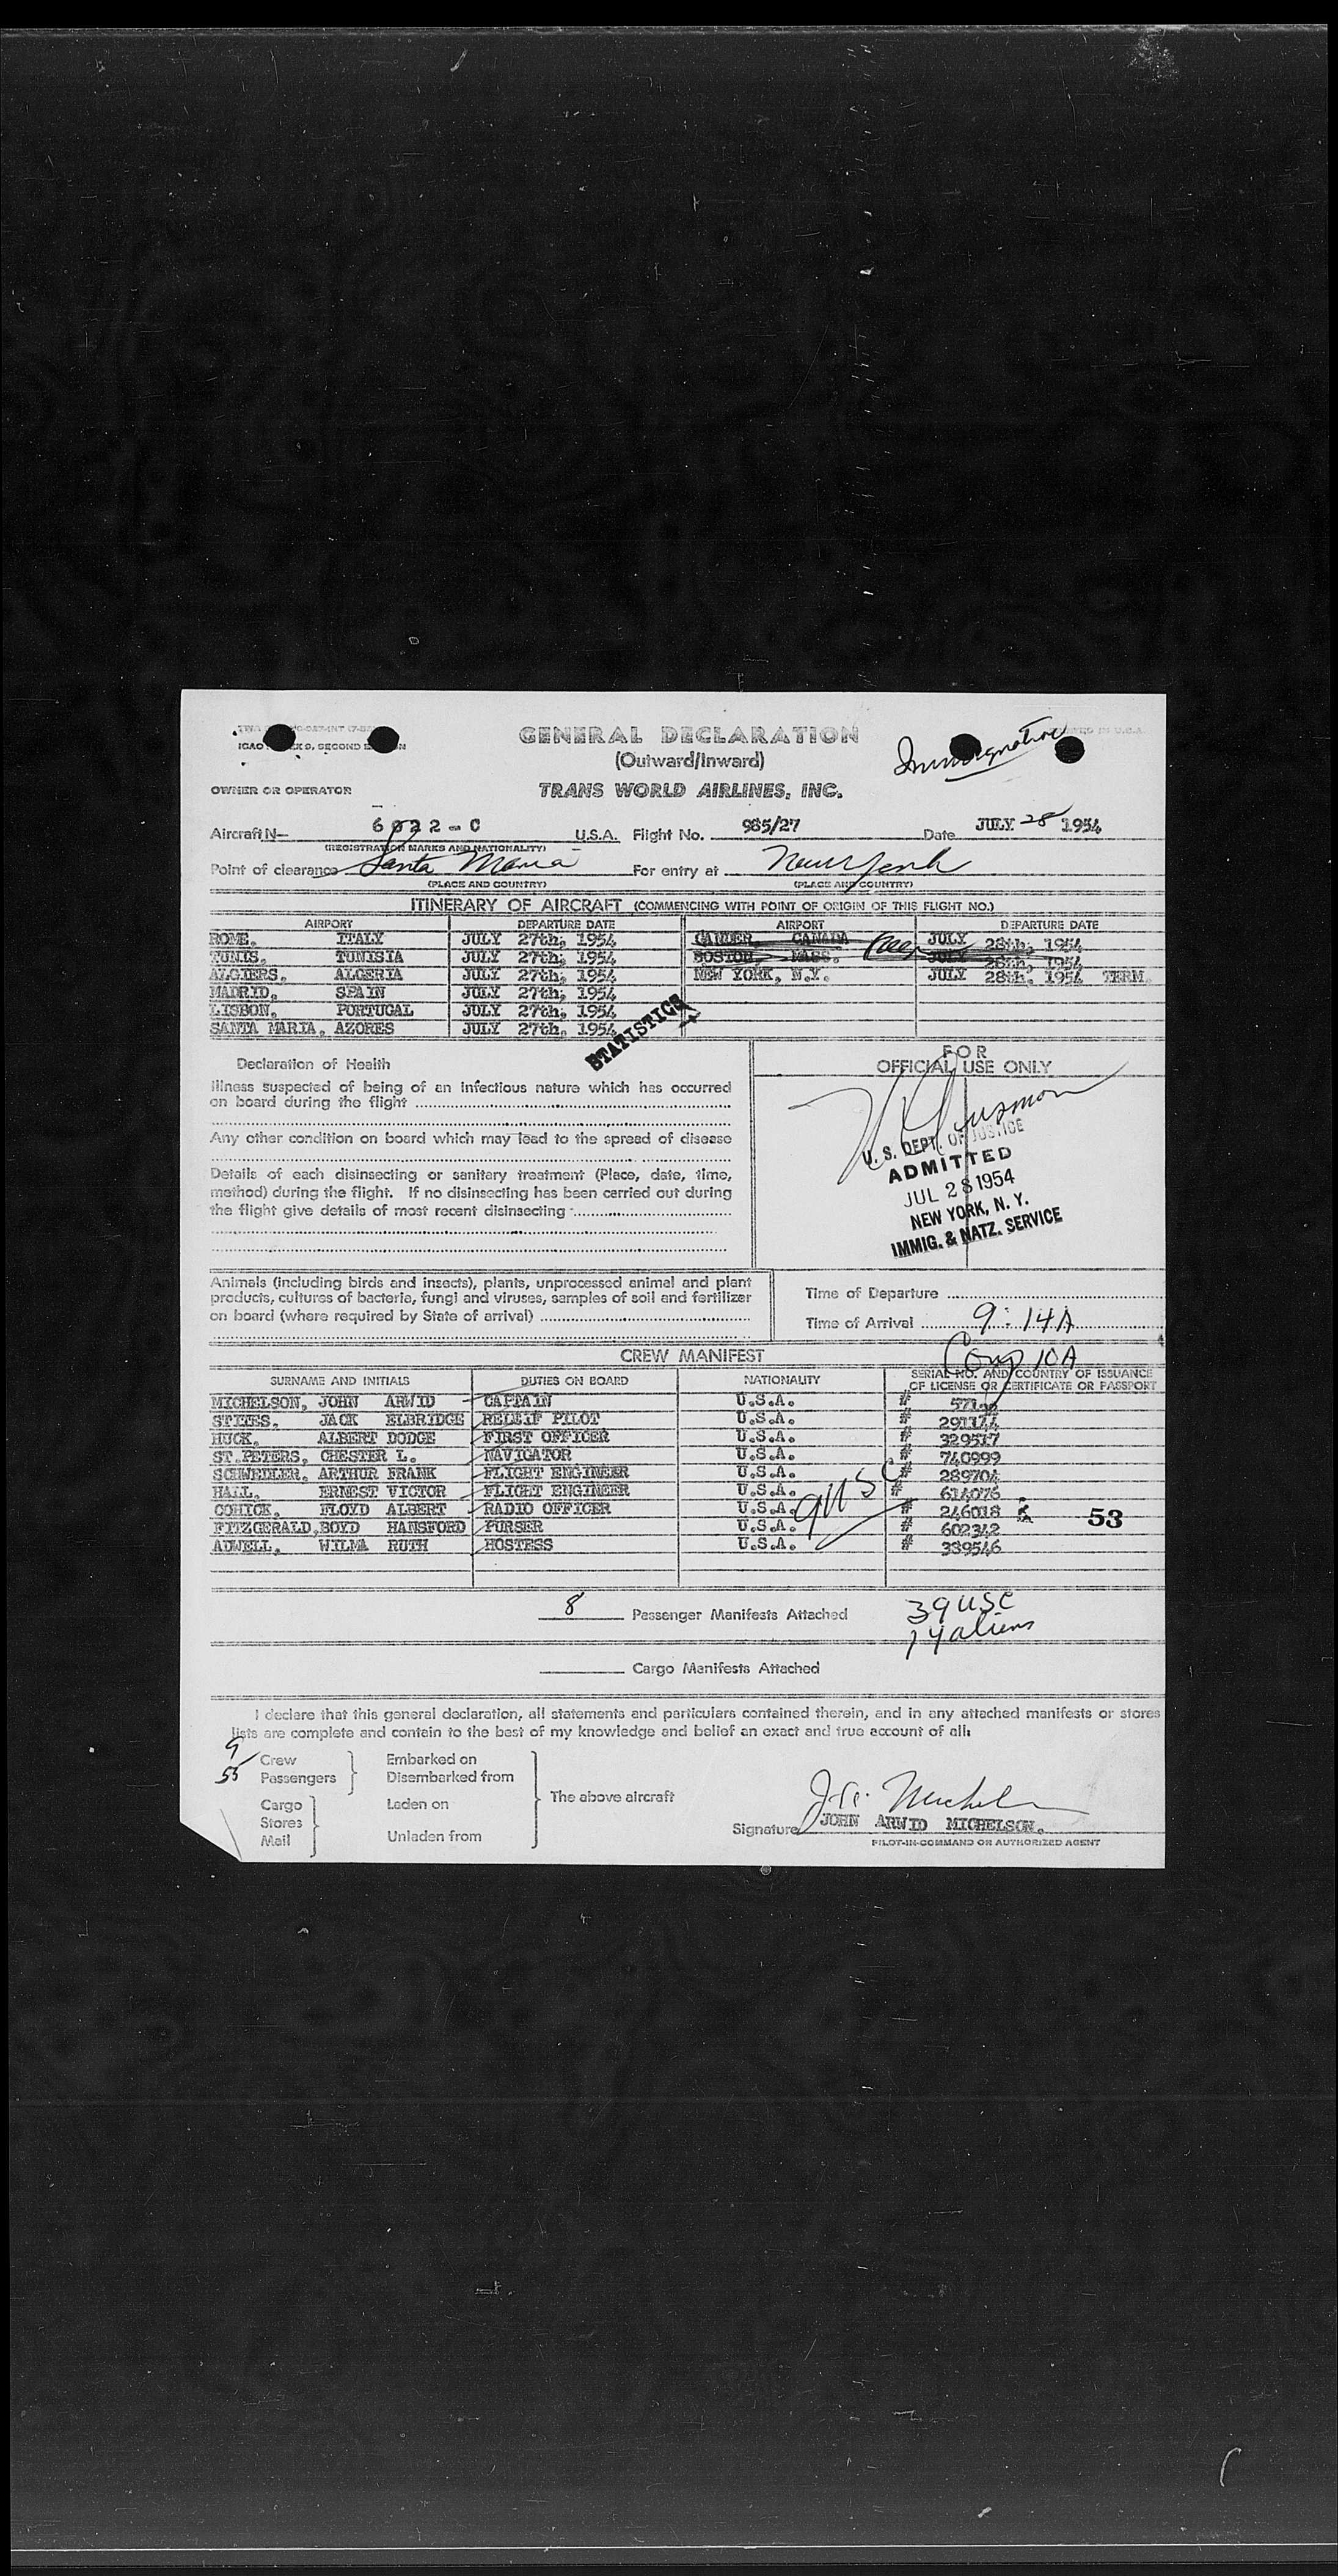 GENERAL DECLARATION
(Outward/Inward)
Immigration
ICAO ANNEX 9, SECOND EDITION
OWNER OR OPERATOR TRANS WORLD AIRLINES, INC.
Aircraft N— 6022-C U.S.A. Flight No. 985/27 Date JULY 28 1954
(REGISTRATION MARKS AND NATIONALITY)
Point of clearance Santa Maria For entry at New York
(PLACE AND COUNTRY) (PLACE AND COUNTRY)
ITINERARY OF AIRCRAFT (COMMENCING WITH POINT OF ORIGIN OF THIS FLIGHT NO.)
AIRPORT DEPARTURE DATE AIRPORT DEPARTURE DATE
ROME, ITALY JULY 27th, 1954 GANDER, CANADA JULY 28th, 1954
TUNIS, TUNISIA JULY 27th, 1954 BOSTON, MASS. JULY 28th, 1954
ALGIERS, ALGERIA JULY 27th, 1954 NEW YORK, N.Y. JULY 28th, 1954 TERM.
MADRID, SPAIN JULY 27th, 1954
LISBON, PORTUGAL JULY 27th, 1954
SANTA MARIA, AZORES JULY 27th, 1954
STATISTICS
Declaration of Health
Illness suspected of being of an infectious nature which has occurred
on board during the flight
Any other condition on board which may lead to the spread of disease
Details of each disinsecting or sanitary treatment (Place, date, time,
method) during the flight. If no disinsecting has been carried out during
the flight give details of most recent disinsecting
FOR
OFFICIAL USE ONLY
U. S. DEPT. OF JUSTICE
ADMITTED
JUL 28 1954
NEW YORK, N. Y.
IMMIG. & NATZ. SERVICE
Animals (including birds and insects), plants, unprocessed animal and plant
products, cultures of bacteria, fungi and viruses, samples of soil and fertilizer
on board (where required by State of arrival)
Time of Departure
Time of Arrival 9:14A
Comp 10A
CREW MANIFEST
SURNAME AND INITIALS DUTIES ON BOARD NATIONALITY SERIAL NO. AND COUNTRY OF ISSUANCE
OF LICENSE OR CERTIFICATE OR PASSPORT
MICHELSON, JOHN ARWID CAPTAIN U.S.A. #
STITES, JACK ELBRIDGE RELEIF PILOT U.S.A. # 291144
HUCK, ALBERT DODGE FIRST OFFICER U.S.A. # 329517
ST.PETERS, CHESTER L. NAVIGATOR U.S.A. # 740999
SCHWEDLER, ARTHUR FRANK FLIGHT ENGINEER U.S.A. # 289704
HALL, ERNEST VICTOR FLIGHT ENGINEER U.S.A. # 614076
COHICK, FLOYD ALBERT RADIO OFFICER U.S.A. # 246018
FITZGERALD, BOYD HANSFORD PURSER U.S.A. # 602342
ADWELL, WILMA RUTH HOSTESS U.S.A. # 389546
9 USC
53
8 Passenger Manifests Attached
39 USC
14 aliens
Cargo Manifests Attached
I declare that this general declaration, all statements and particulars contained therein, and in any attached manifests or stores
lists are complete and contain to the best of my knowledge and belief an exact and true account of all:
9 Crew Embarked on
55 Passengers Disembarked from
The above aircraft
Cargo Laden on
Stores
Mail Unladen from
Signature JOHN ARWID MICHELSON.
PILOT-IN-COMMAND OR AUTHORIZED AGENT